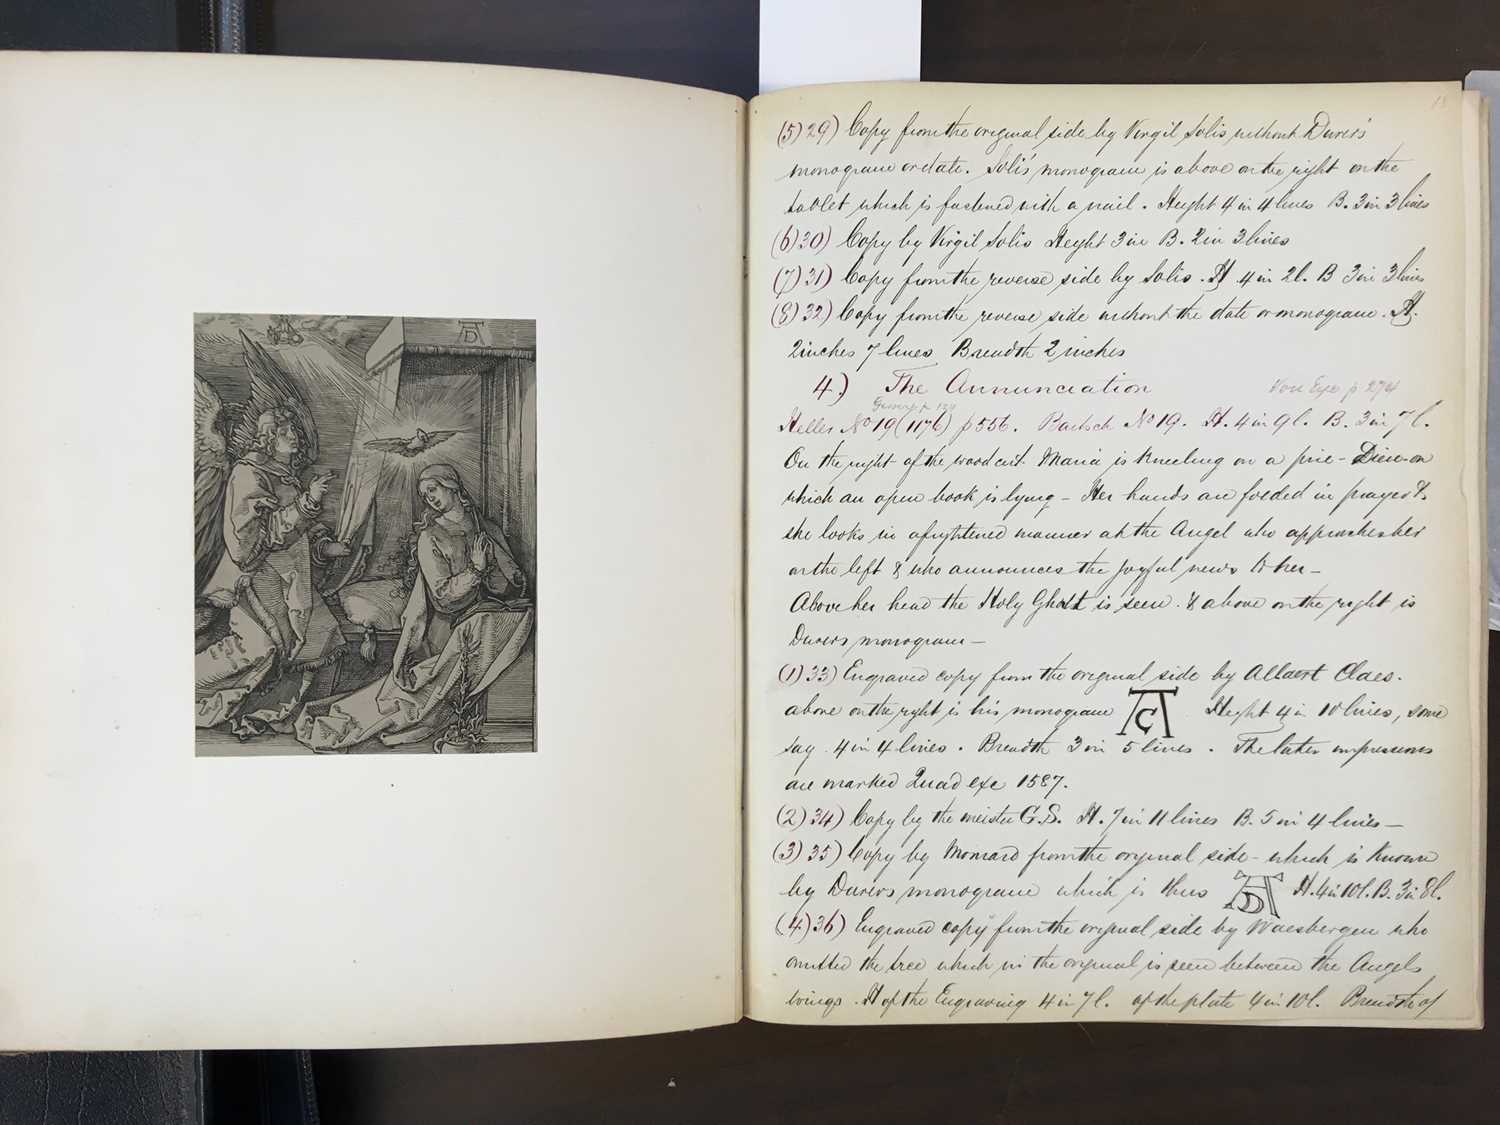 (5) 29) Copy from the original side by Virgil Solis without Durer's
monogram or date. Soli's monogram is above on the right on the
tablet which is fastened with a nail. Height 4 in 4 lines B. 3 in 3 lines
(6) 30) Copy by Virgil Solis Height 3 in B. 2 in 3 lines
(7) 31) Copy from the reverse side by Solis. H. 4 in 2 l. B 3 in 3 lines
(8) 32) Copy from the reverse side without the date or monogram. H.
2 inches 7 lines Breadth 2 inches
4) The Annunciation Von Eye p 274
Heller No 19 (1176) p 556. Bartsch No 19. H. 4 in 9 l. B. 3 in 7 l.
On the right of the woodcut Maria is kneeling on a prie-Dieu on
which an open book is lying - Her hands are folded in prayer &
she looks in a frightened manner at the Angel who approaches her
on the left & who announces the joyful news to her -
Above her head the Holy Ghost is seen. & above on the right is
Durers monogram -
(1) 33) Engraved copy from the original side by Allaert Claes.
above on the right is his monogram AC Height 4 in 10 lines, some
say 4 in 4 lines. Breadth 3 in 5 lines. The later impressions
are marked Quad exe 1587.
(2) 34) Copy by the meister G.S. H. 7 in 11 lines B. 5 in 4 lines -
(3) 35) Copy by from the original side - which is known
by Durers monogram which is thus AD H. 4 in 10 l. B. 3 in 8 l.
(4) 36) Engraved copy from the original side by Waesbergen who
omitted the tree which in the original is seen between the Angels
wings. H of the Engraving 4 in 7 l. of the plate 4 in 10 l. Breadth of
AD